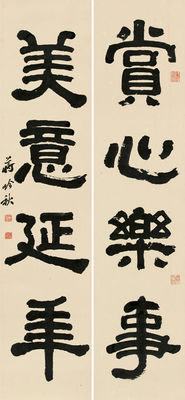 賞心樂事
美意延年
蔣吟秋